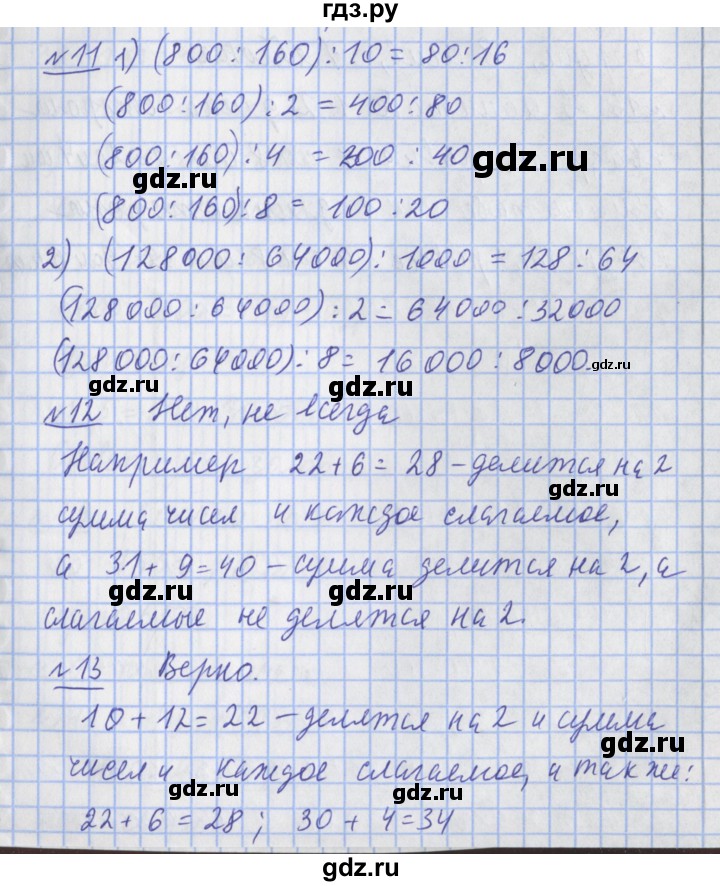 гдз.ру
№11 1) (800:160):10=80:16
(800:160):2=400:80
(800:160):4=200:40
gdz.ru
gdz.ru
(800:160):8=100:20
gdz.ru
2) (128000:64000):1000=128:64
(128000:64000):2=64000:32000
(128000:64000):8=16000:8000
gdz.ru
gdz.ru
gdz.ru
№12 Нет, не всегда
Например 22+6=28-делится на 2
gdz.ru
сумма чисел и каждое слагаемое,
а 31+9=40-сумма делится на 2, а
gdz.ru
gdz.ru
слагаемые не делятся на 2.
№13 Верно.
10+12=22-делятся на 2 и сумма
gdz.ru
чисел и каждое слагаемое, а также:
gdz.ru
gdz.ru
22+6=28; 30+4=34
gdz.ru